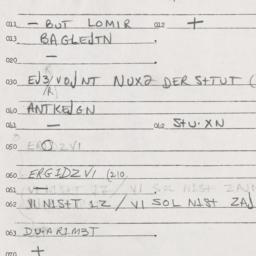 011 — BUT LOMIR 012 +
013 BAGLEJTN
020 —
030 EJ3/VOJNT NUX2 DER STTUT (
040 ANTKEJGN
041 — 042 STU·XN
050 O
060 ERGIDZVI (210.
061 —
062 VINISTT 1Z / VI SOL NIST ZAJ
063 DU·ARIM3T
070 +